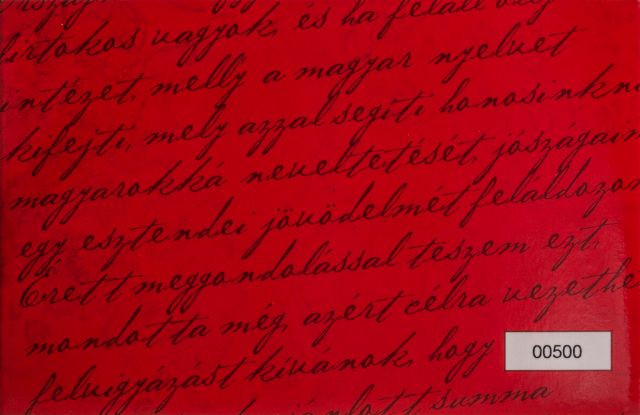 birtokos vagyok, és ha feláll
intézet, melly a magyar nyelvet
kifejti, mely azzal segíti honosinkn
magyarokká neveltetését, jószágaim
egy esztendei jövödelmét feláldozom
Érett meggondolással teszem ezt,
mondotta még, azért célra vezethe
felvigyázást kívánok, hogy
summa
00500